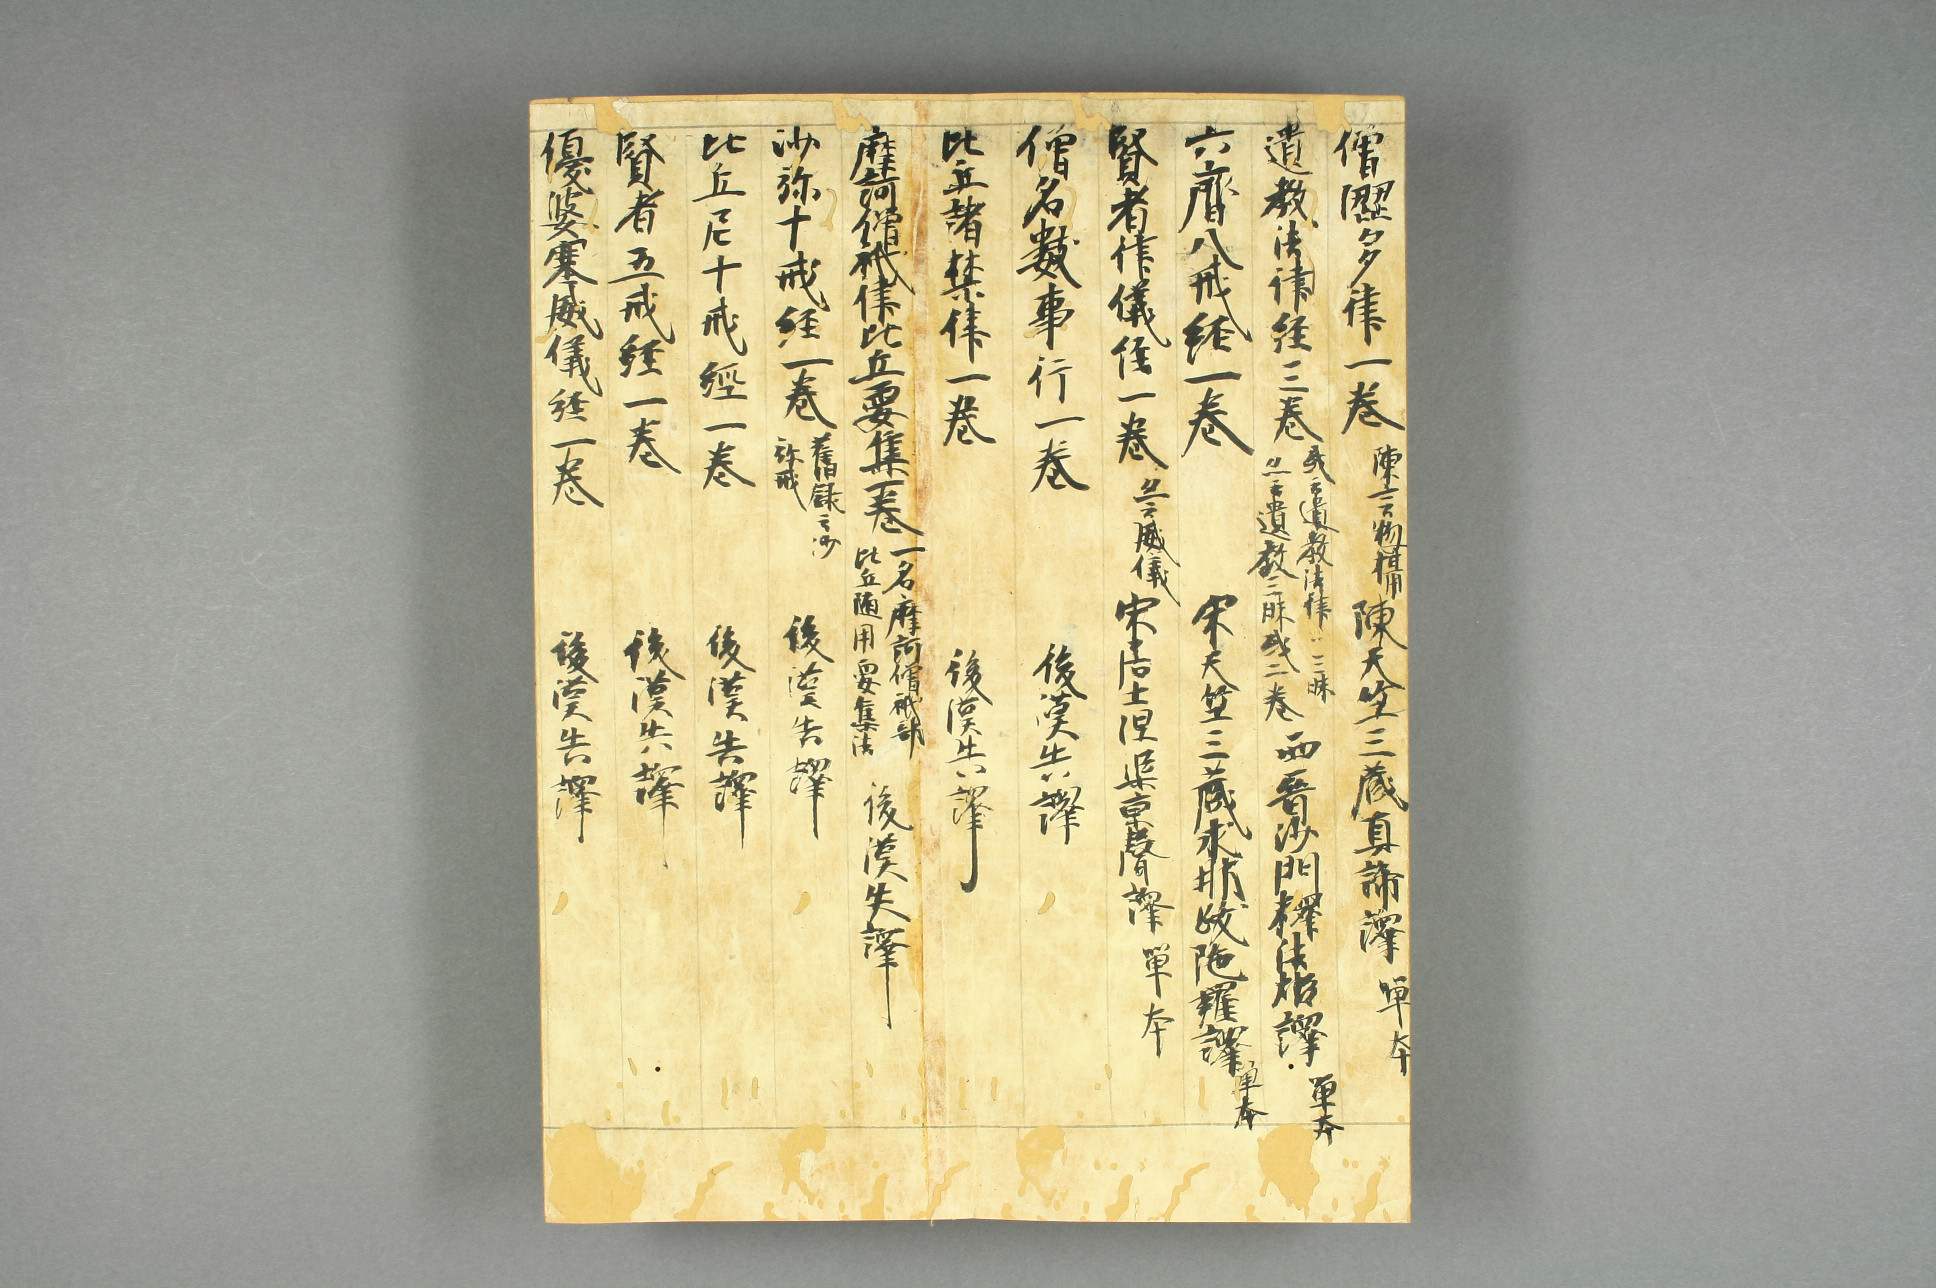 僧澀多律一卷 陳言物攝 陳天竺三藏真諦譯 單本
遺教法律經三卷 或云遺教法律三昧 亦云遺教三昧或二卷 西晉沙門釋法炬譯 單本
六齊八戒經一卷 宋天竺三藏求那跋陁羅譯 單本
賢者律儀經一卷 亦云威儀 宋居士沮渠京聲譯 單本
僧名數事行一卷 後漢失譯
比丘諸禁律一卷 後漢失譯
摩訶僧祇律比丘要集一卷 一名摩訶僧祇部 比丘随用要集法 後漢失譯
沙弥十戒経一卷 舊録云沙 弥戒 後漢失譯
比丘尼十戒經一卷 後漢失譯
賢者五戒經一卷 後漢失譯
優婆塞威儀経一卷 後漢失譯